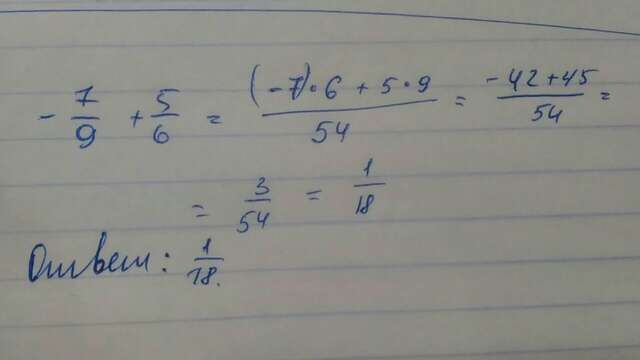 - 7/9 + 5/6 = ((-7)·6 + 5·9)/54 = (-42+45)/54 =
= 3/54 = 1/18
Ответ: 1/18.